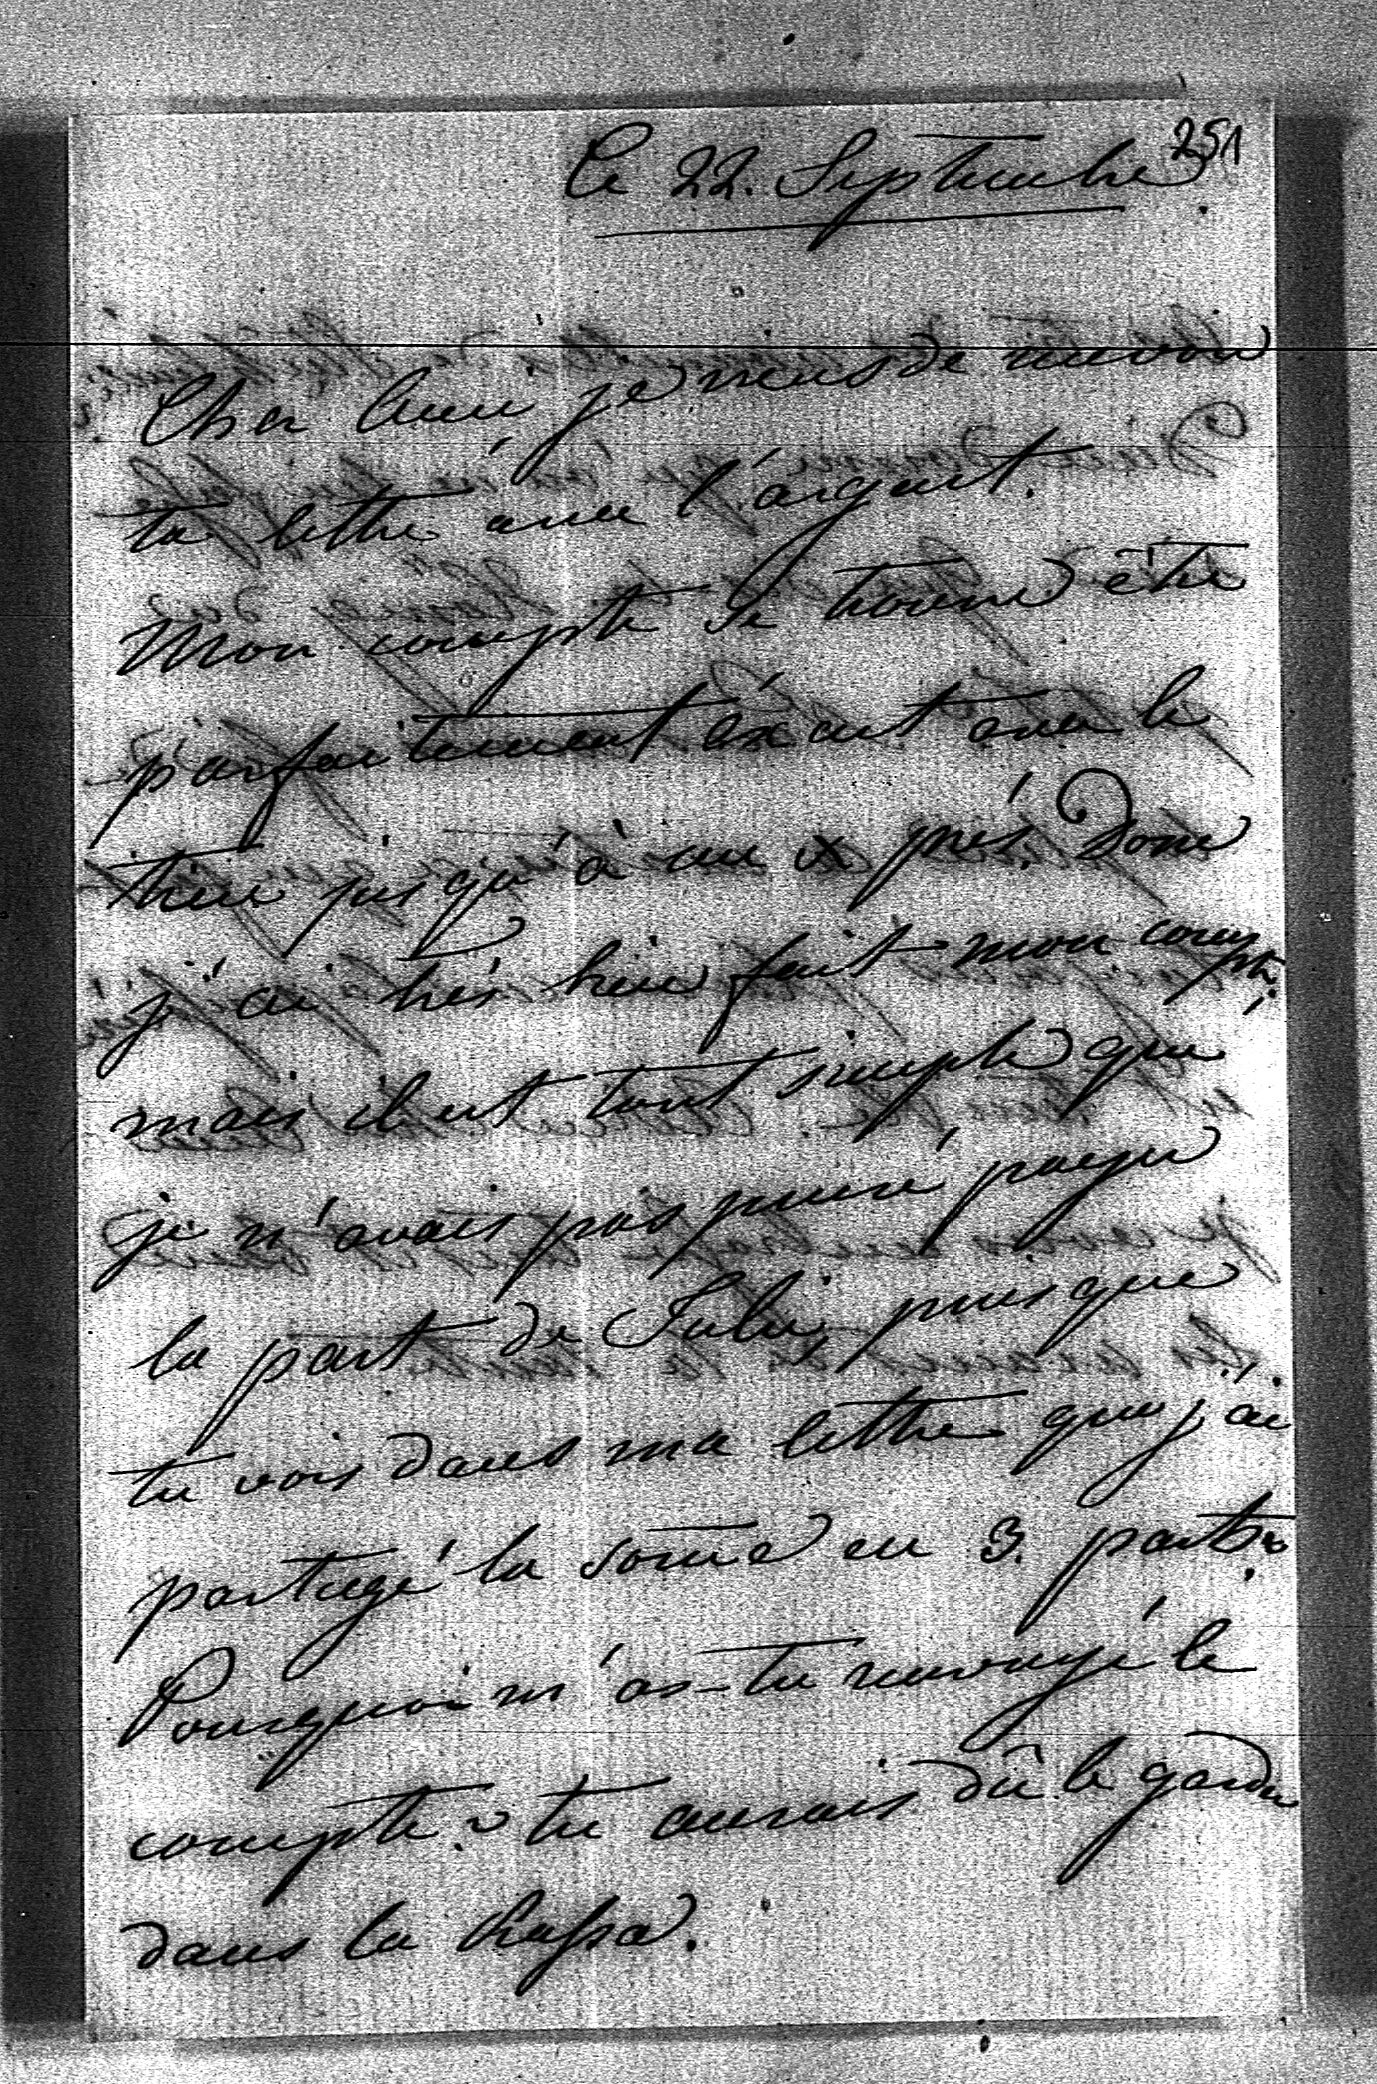 251
Ce 22. Septembre
Cher Ami je viens de recevoir
ta lettre avec l'argent.
Mon compte se trouve être
parfaitement éxact avec le
tien jusqu'à un x près. Donc
j'ai très bien fait mon compte,
mais il est tout simple que
je n'avais pas pensé payer
la part de Julie, puisque
tu vois dans ma lettre que j'ai
partagé la some en 3. parts.
Pourquoi m'as-tu renvoyé le
compte? tu aurais dû le garder
dans la